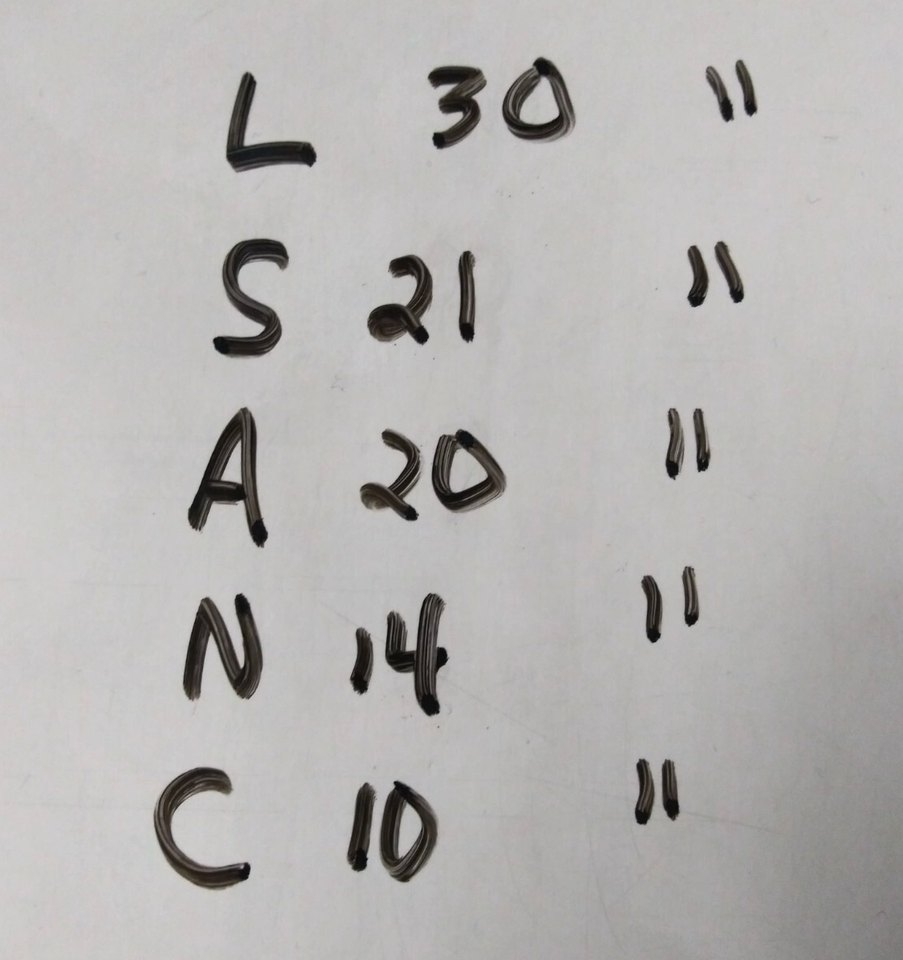 L 30 "
S 21 "
A 20 "
N 14 "
C 10 "